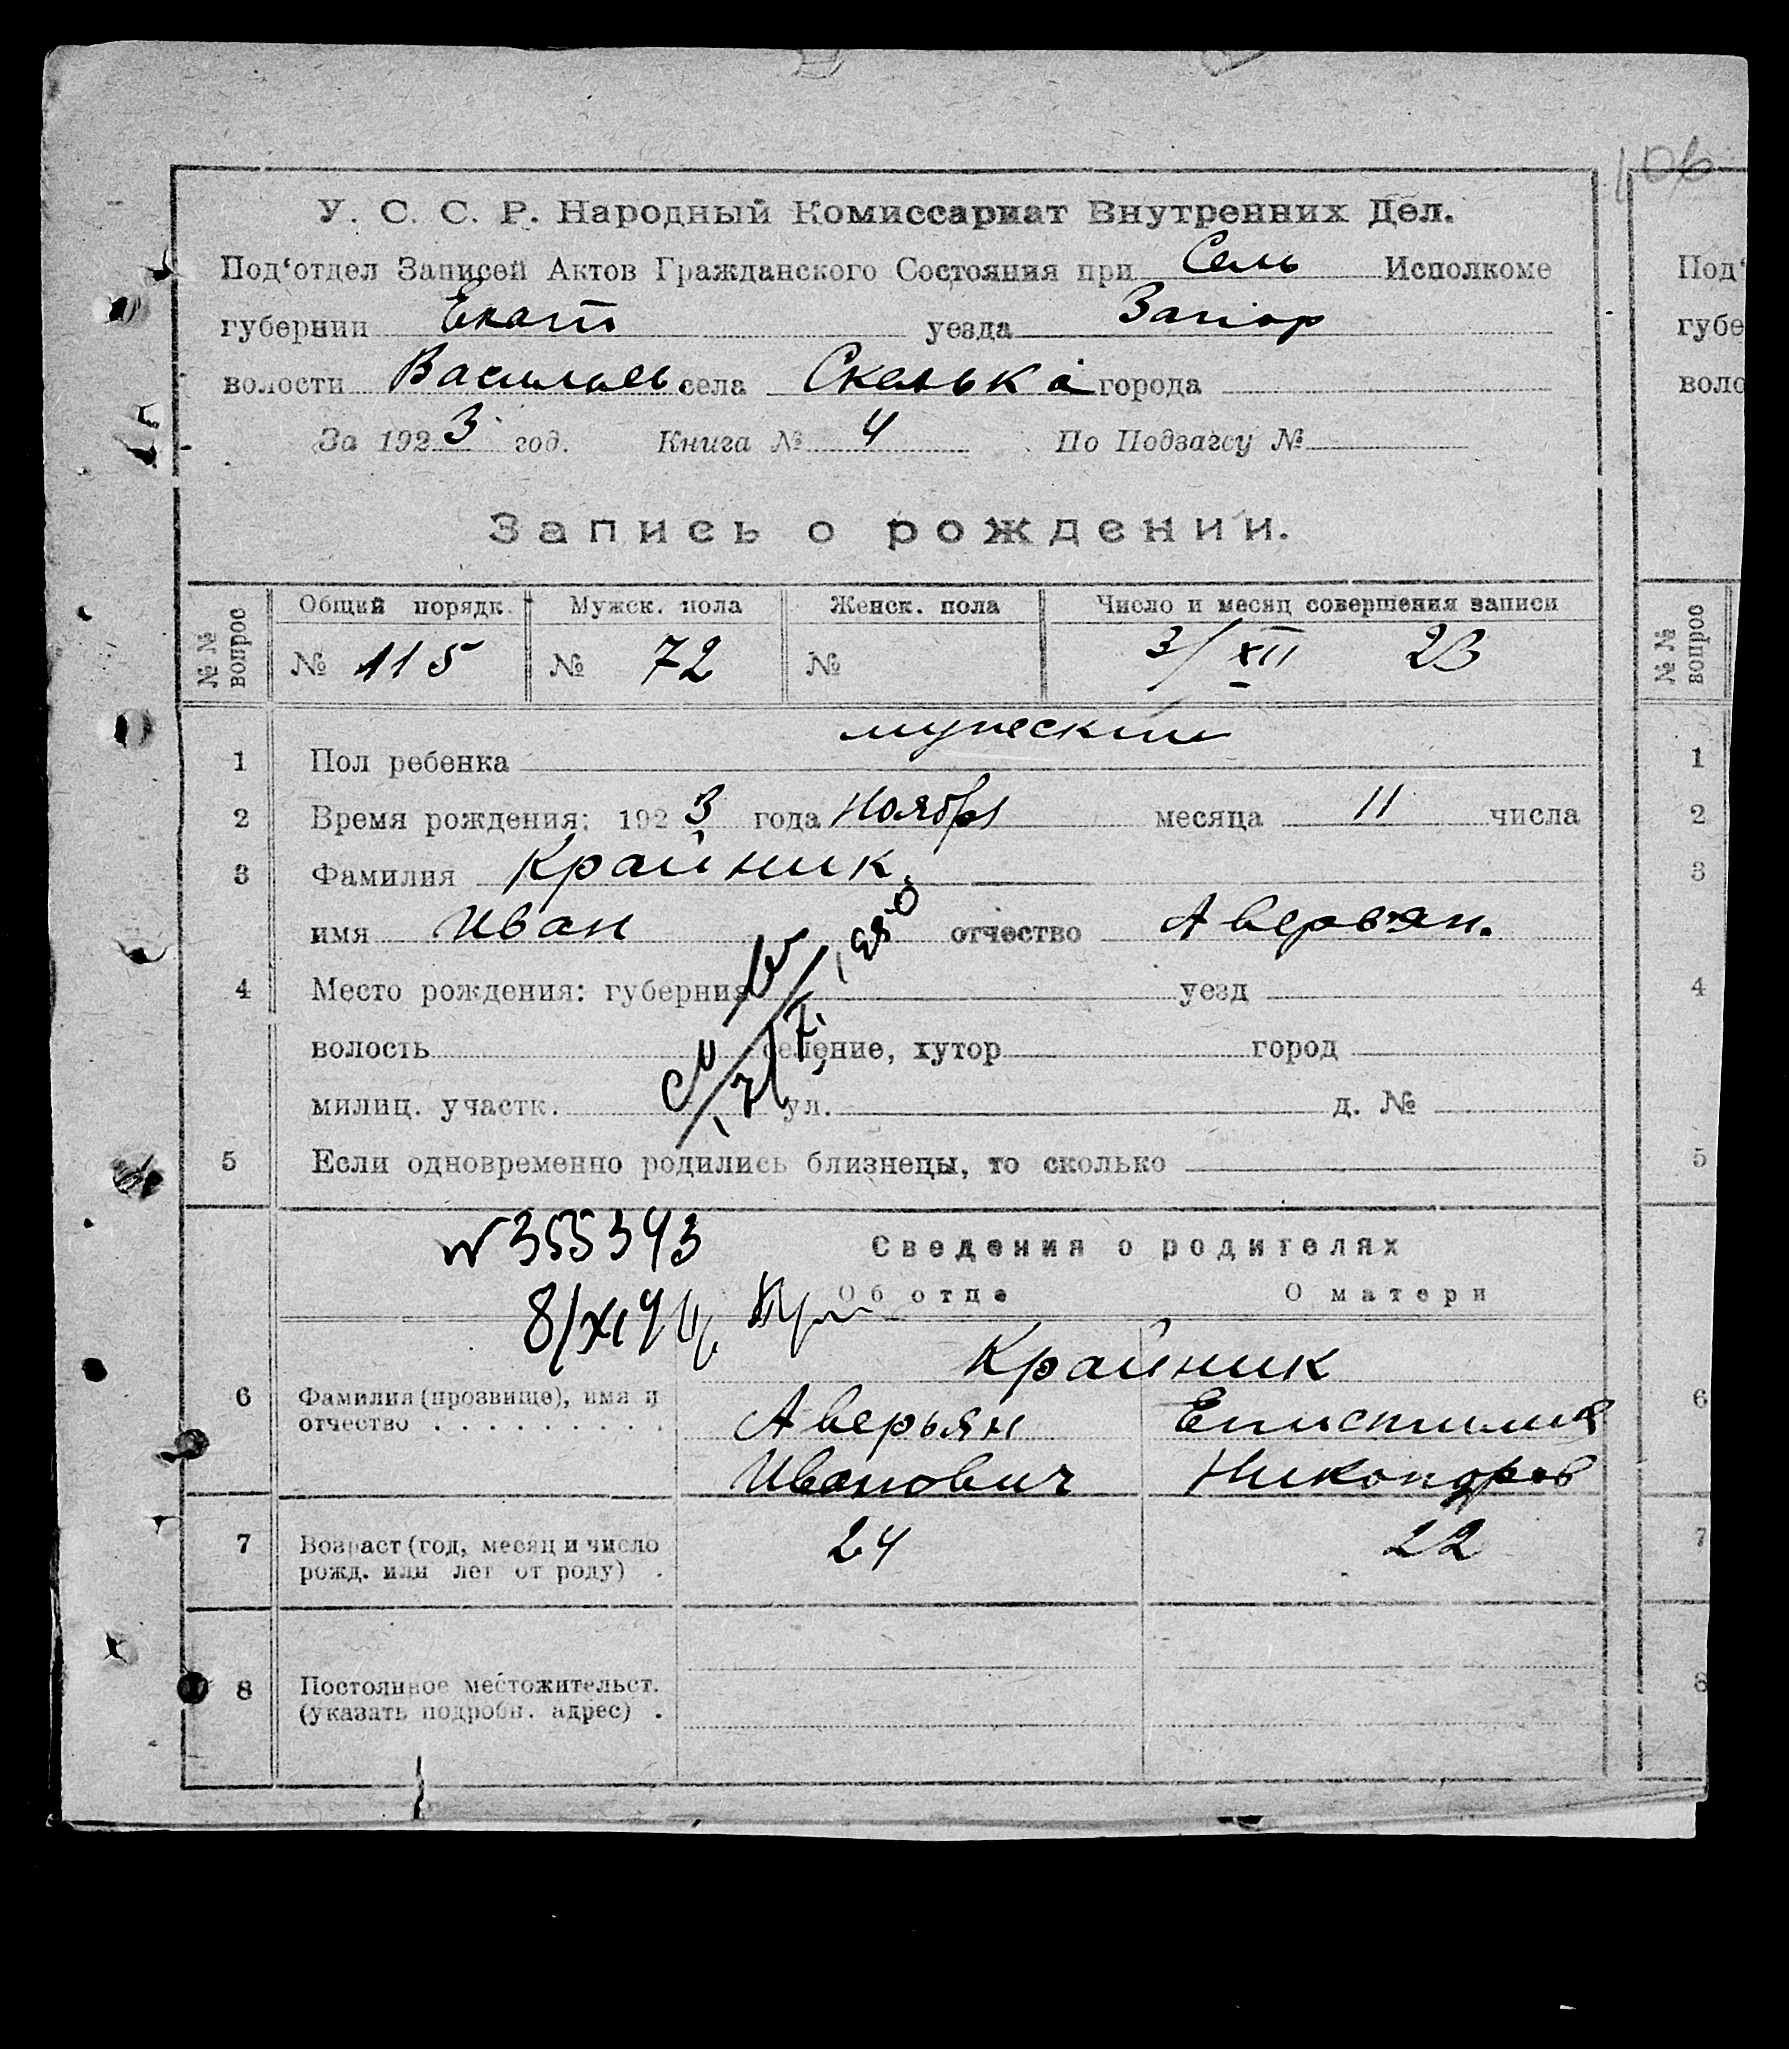 106
У. С. С. Р. Народный Комиссариат Внутренних Дел.
Под‘отдел Записей Актов Гражданского Состояния при Сель Исполкоме
губернии Екат уезда Запор
волости Василь села Скелька города
За 1923 год. Книга № 4 По Подзагсу №
Запись о рождении.
№№ вопрос
Общий порядк. Мужск. пола Женск. пола Число и месяц совершения записи
№ 115 № 72 № 3/XII 23
1 Пол ребенка мужеский
2 Время рождения: 1923 года Ноября месяца 11 числа
3 Фамилия Крайник.
имя Иван отчество Аверьян.
4 Место рождения: губерния уезд
волость селение, хутор город
милиц. участк. ул. д. №
5 Если одновременно родились близнецы, то сколько
№ 355343
Сведения о родителях
8/XI
Об отце О матери
Крайник
6 Фамилия (прозвище), имя и
отчество . . . . . . . . . .
Аверьян Епистилия
Иванович Никоноров
7 Возраст (год, месяц и число
рожд. или лет от роду) .
24 22
8 Постоянное местожительст.
(указать подробн. адрес) .
Под‘
губе
воло
№№ вопрос
1
2
3
4
5
6
7
8